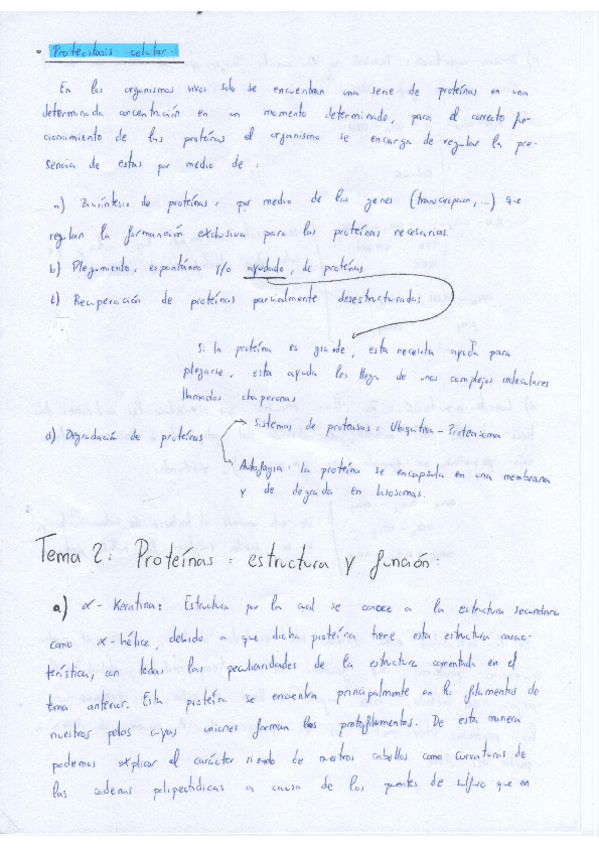 • Proteostasis celular.
En los organismos vivos solo se encuentran una serie de proteínas en una
determinada concentración en un momento determinado, para el correcto fun-
cionamiento de las proteínas el organismo se encarga de regular la pre-
sencia de estas por medio de:
a) Biosíntesis de proteínas: por medio de los genes (transcripcion,...) que
regulan la formación exclusiva para las proteínas necesarias.
b) Plegamiento, espontáneo y/o ayudado, de proteínas
c) Recuperación de proteínas parcialmente desestructuradas
Si la proteína es grande, esta necesita ayuda para
plegarse, esta ayuda les llega de unos complejos moleculares
llamados chaperonas
d) Degradación de proteínas
Sistemas de proteasas: Ubiquitina - Proteasoma
Autofagia: la proteína se encapsula en una membrana
y de degrada en lisosomas.
Tema 2: Proteínas: estructura y función:
a) α - Keratina: Estructura por la cual se conoce a la estructura secundaria
como α-hélice, debido a que dicha proteína tiene esta estructura carac-
terística, con todas las peculiaridades de la estructura comentada en el
tema anterior. Esta proteína se encuentra principalmente en los filamentos de
nuestros pelos cuyas uniones forman los protofilamentos. De esta manera
podemos explicar el carácter rizado de nuestros cabellos como curvaturas de
las cadenas polipeptídicas a causa de los puentes de sulfuro que en